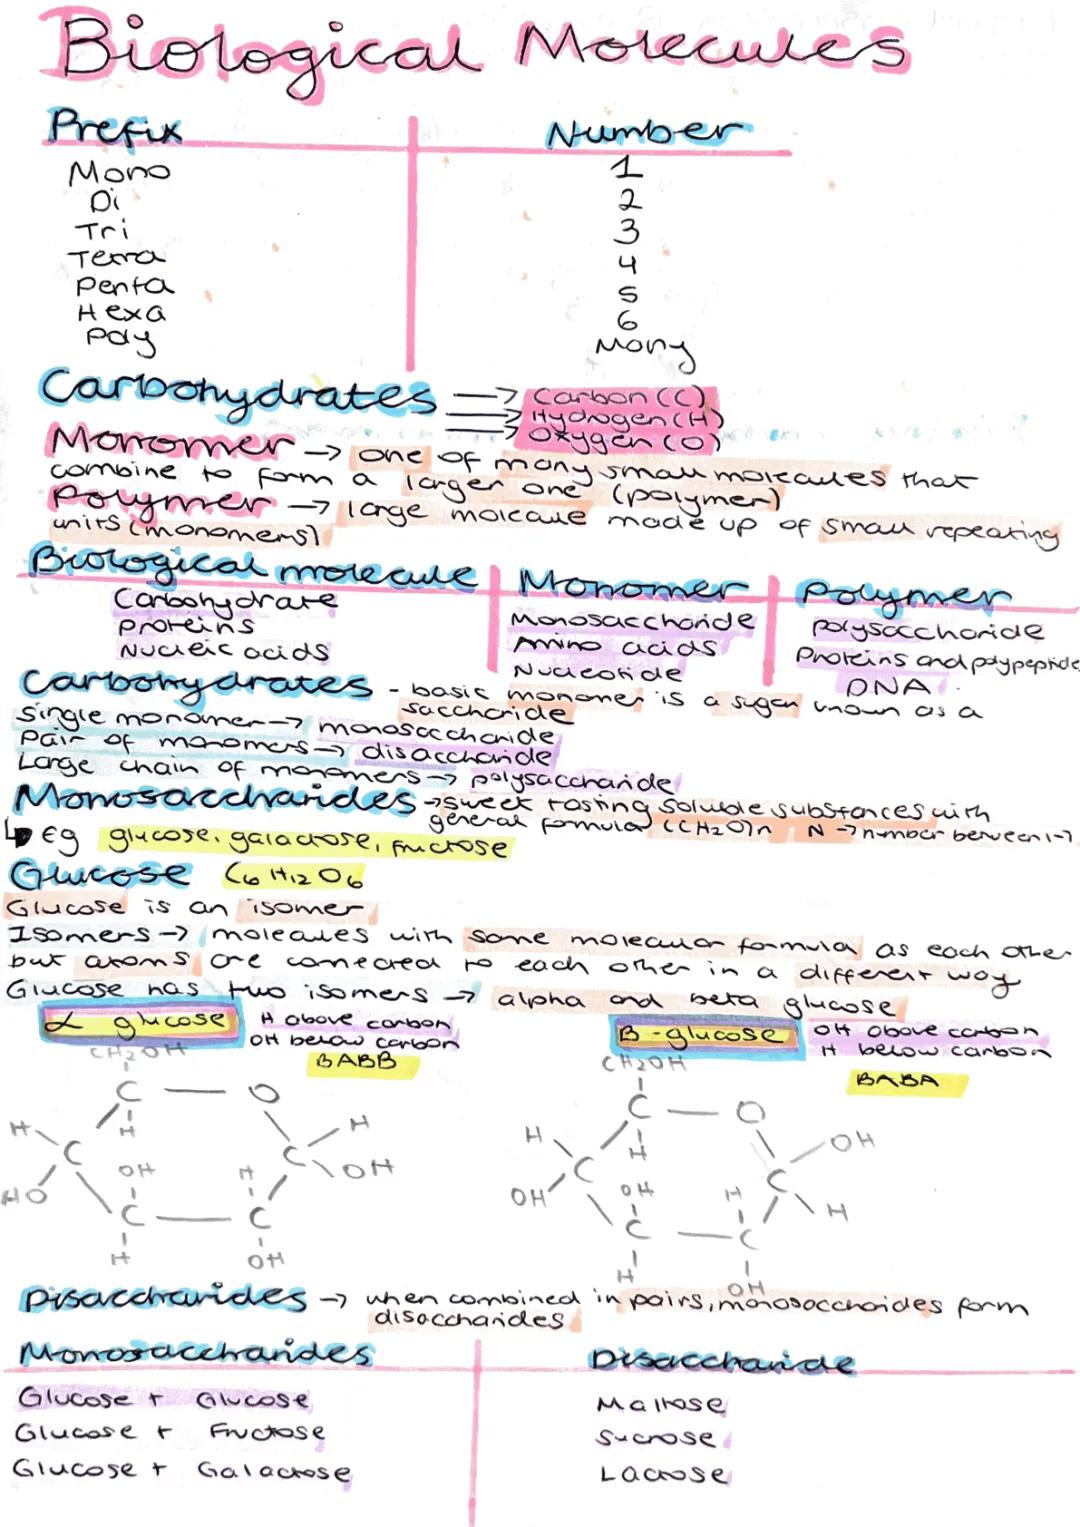 Biological Molecules
Prefix Number
Mono 1
Di 2
Tri 3
Tetra 4
Penta 5
Hexa 6
Poly Many
Carbohydrates → Carbon (C)
→ Hydrogen (H)
→ Oxygen (O)
Monomer → one of many small molecules that
combine to form a larger one (polymer)
Polymer → large molecule made up of small repeating
units (monomers)
Biological molecule Monomer Polymer
Carbohydrate Monosaccharide Polysaccharide
Proteins Amino acids Proteins and polypeptide
Nucleic acids Nucleotide DNA
Carbohydrates - basic monomer is a sugar known as a
saccharide
Single monomer → monosaccharide
Pair of monomers → disaccharide
Large chain of monomers → polysaccharide
Monosaccharides → sweet tasting soluble substances with
general formula (CH2O)n N → number between 1-7
↳ Eg glucose, galactose, fructose
Glucose C6 H12 O6
Glucose is an isomer
Isomers → molecules with same molecular formula as each other
but atoms are connected to each other in a different way
Glucose has two isomers → alpha and beta glucose
α glucose H above carbon
OH below carbon
BABB
B-glucose OH above carbon
H below carbon
BABA
CH2OH
C — O
H H
H C C OH
HO OH H
C — C
H OH
CH2OH
C — O
H H OH
C C
OH OH H H
C — C
H OH
Disaccharides → when combined in pairs, monosaccharides form
disaccharides
Monosaccharides Disaccharide
Glucose + Glucose Maltose
Glucose + Fructose Sucrose
Glucose + Galactose Lactose